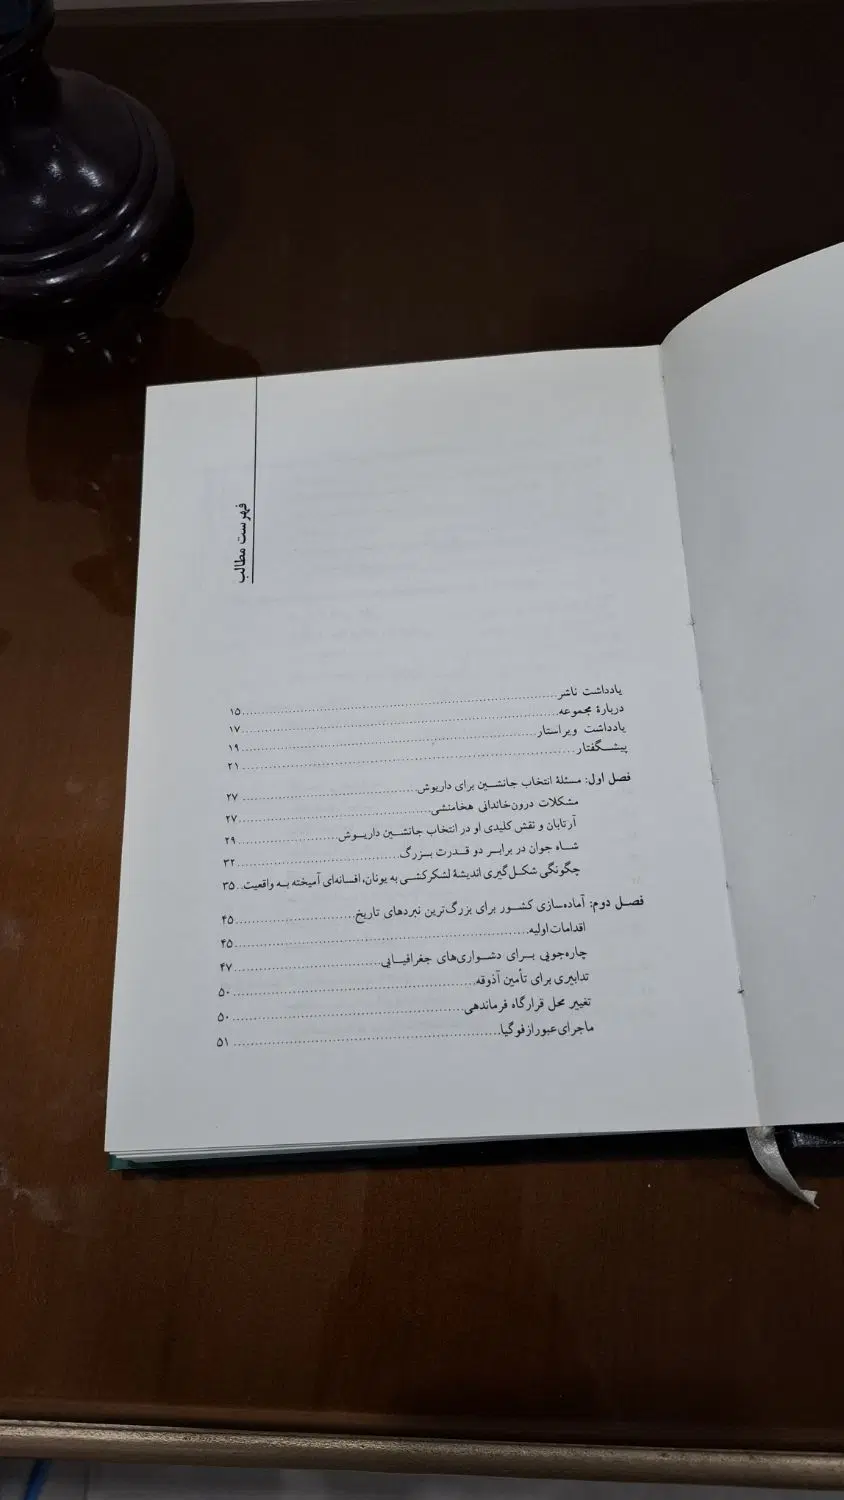 فهرست مطالب
یادداشت ناشر ۱۵
دربارهٔ مجموعه ۱۷
یادداشت ویراستار ۱۹
پیشگفتار ۲۱
فصل اول: مسئلهٔ انتخاب جانشین برای داریوش ۲۷
مشکلات درون‌خاندانی هخامنشی ۲۷
آرتابان و نقش کلیدی او در انتخاب جانشین داریوش ۲۹
شاه جوان در برابر دو قدرت بزرگ ۳۲
چگونگی شکل‌گیری اندیشهٔ لشکرکشی به یونان، افسانه‌ای آمیخته به واقعیت ۳۵
فصل دوم: آماده‌سازی کشور برای بزرگ‌ترین نبردهای تاریخ ۴۵
اقدامات اولیه ۴۵
چاره‌جویی برای دشواری‌های جغرافیایی ۴۷
تدابیری برای تأمین آذوقه ۵۰
تغییر محل قرارگاه فرماندهی ۵۰
ماجرای عبور از فوگیا ۵۱